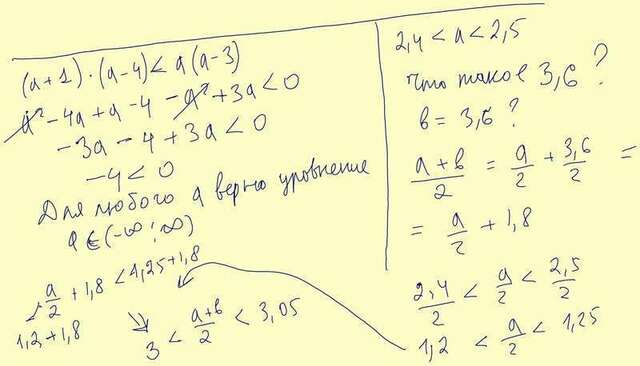 (a+1)·(a-4)<a(a-3)
a²-4a+a-4-a²+3a<0
-3a-4+3a<0
-4<0
Для любого а верно уровнение
a∈(-∞;∞)
a/2+1,8<1,25+1,8
1,2+1,8
3<(a+b)/2<3,05
2,4<a<2,5
Что такое 3,6?
b=3,6?
(a+b)/2=a/2+3,6/2=
=a/2+1,8
2,4/2<a/2<2,5/2
1,2<a/2<1,25